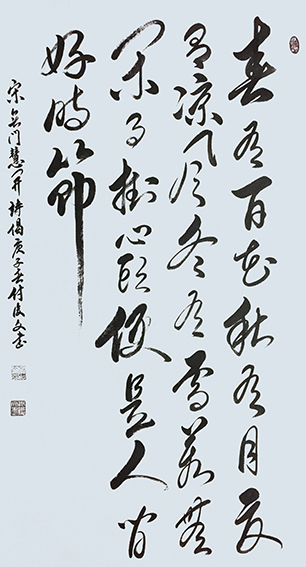 春有百花秋有月夏
有凉风冬有雪若無
闲事掛心头便是人间
好时节
宋無门慧开诗偈庚子